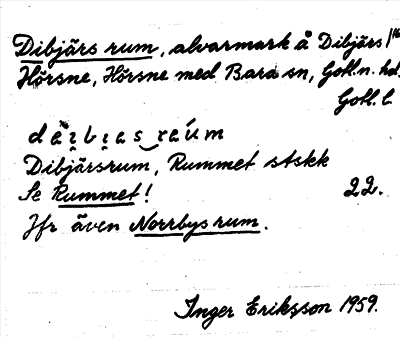 Dibjärs rum, alvarmark å Dibjärs 1/16
Hörsne, Hörsne med Bara sn, Gotl.n. hd,
Gotl. l.
Dibjärsrum, Rummet stskk
Se Rummet! 22.
Jfr även Norrbys rum.
Inger Eriksson 1959.